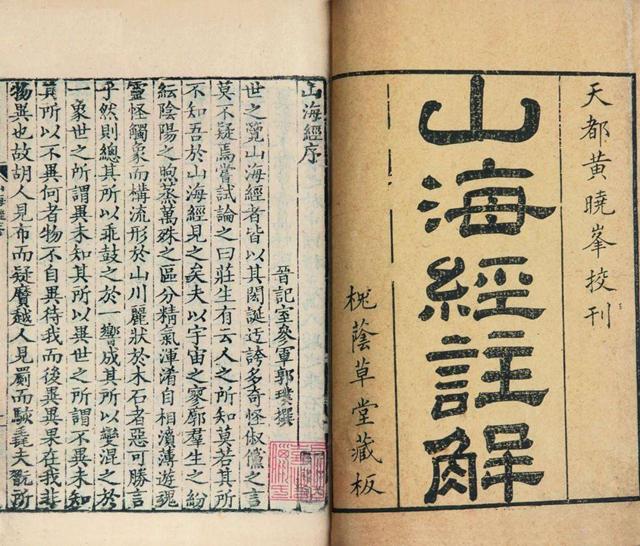 天都黃曉峯挍刊
山海經註解
槐蔭草堂藏板
山海經序
晉記室參軍郭璞撰
世之覽山海經者皆以其閎誕迃誇多奇怪俶儻之言
莫不疑焉嘗試論之曰莊生有云人之所知莫若其所
不知吾於山海經見之矣夫以宇宙之寥廓羣生之紛
紜陰陽之煦蒸萬殊之區分精氣渾淆自相濆薄遊魂
靈怪觸象而構流形於山川麗狀於木石者惡可勝言
乎然則總其所以乖鼓之於一響成其所以變混之於
一象世之所謂異未知其所以異世之所謂不異未知
其所以不異何者物不自異待我而後異異果在我非
物異也故胡人見布而疑黂越人見罽而駭毳夫翫所